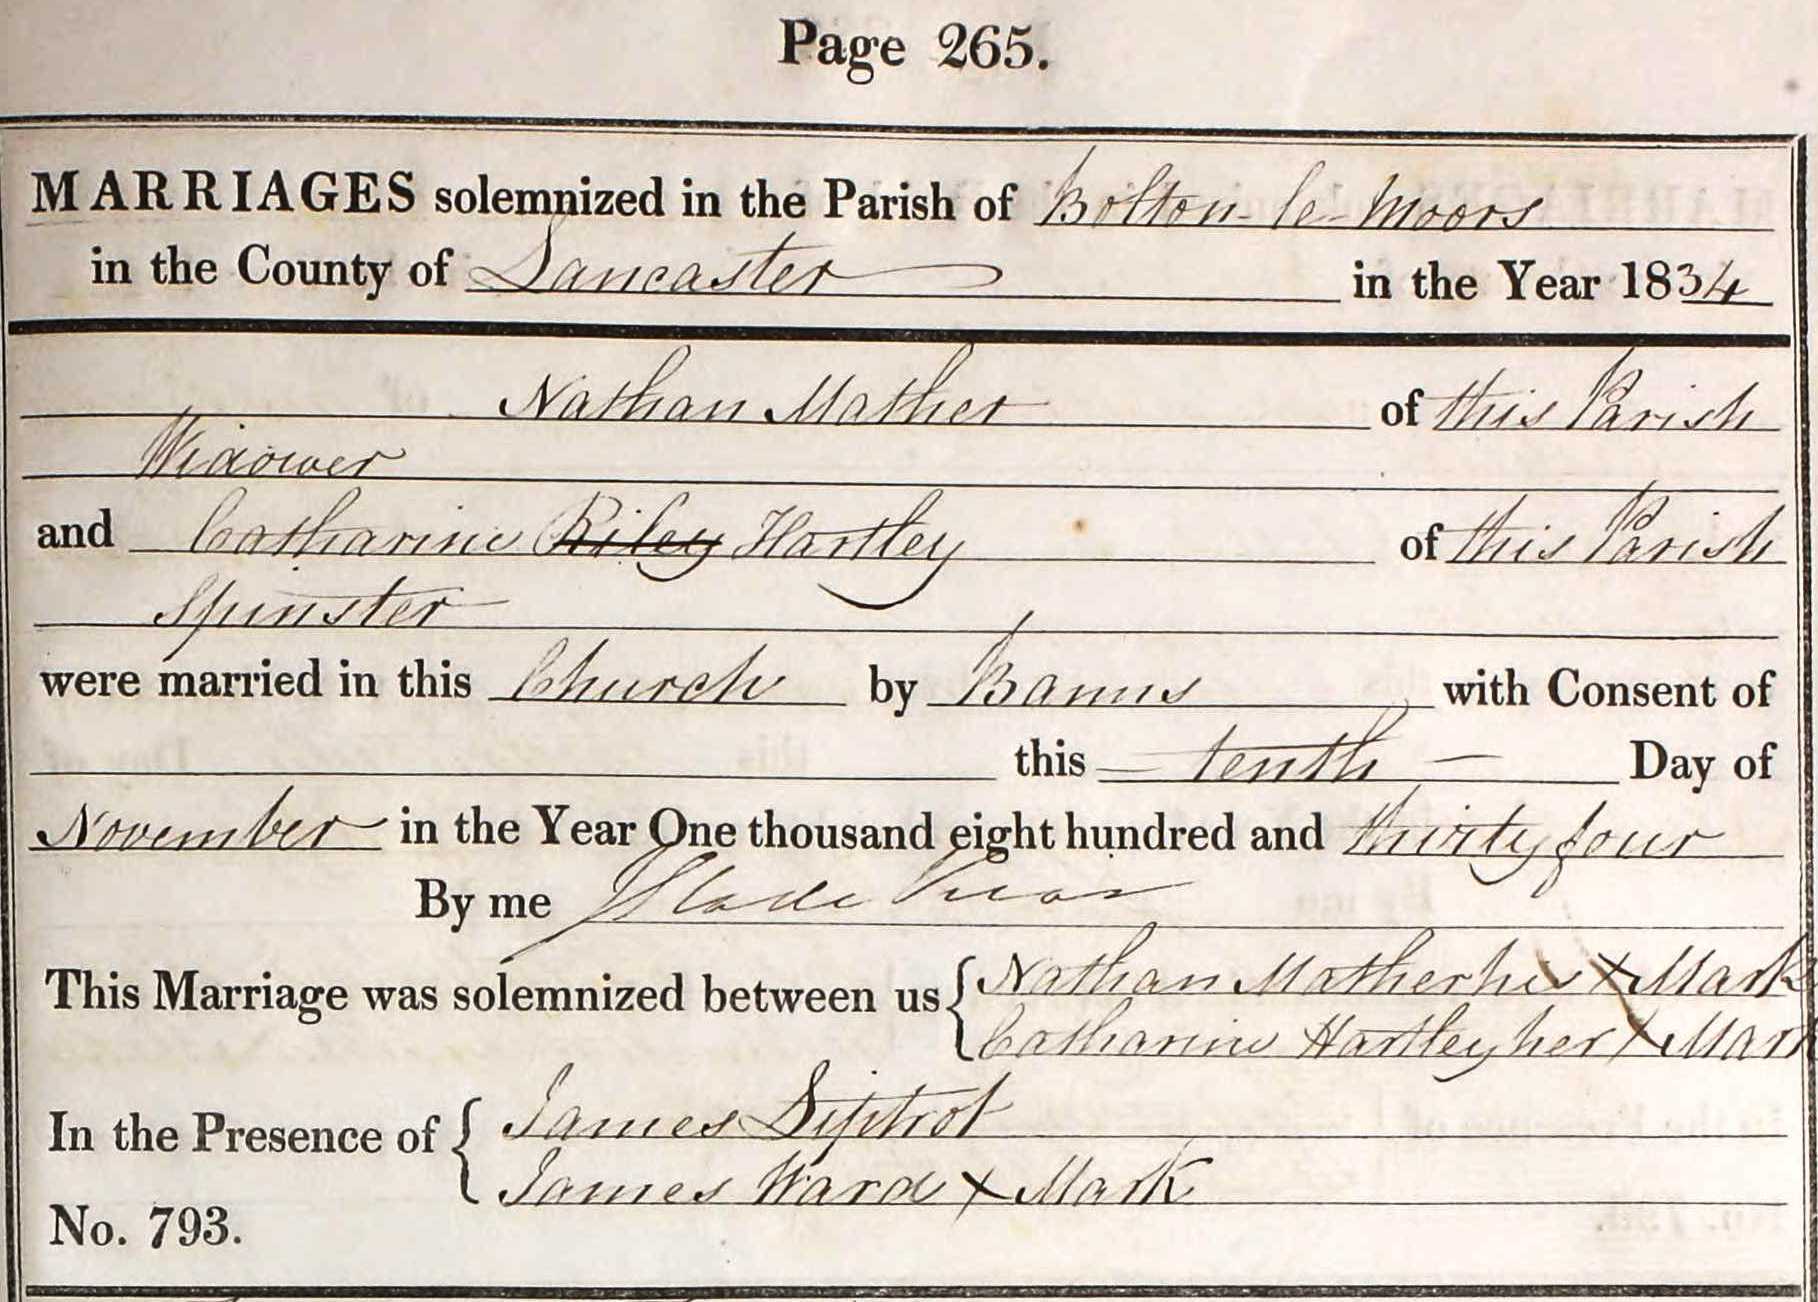 Page 265.
MARRIAGES solemnized in the Parish of Bolton-le-Moors
in the County of Lancaster in the Year 1834
Nathan Mather of this Parish
Widower
and Catharine Riley Hartley of this Parish
Spinster
were married in this Church by Banns with Consent of
this tenth Day of
November in the Year One thousand eight hundred and thirty four
By me J Slade Vicar
This Marriage was solemnized between us { Nathan Mather his X Mark
Catharine Hartley her X Mark
In the Presence of { James Diptrot
James Ward X Mark
No. 793.